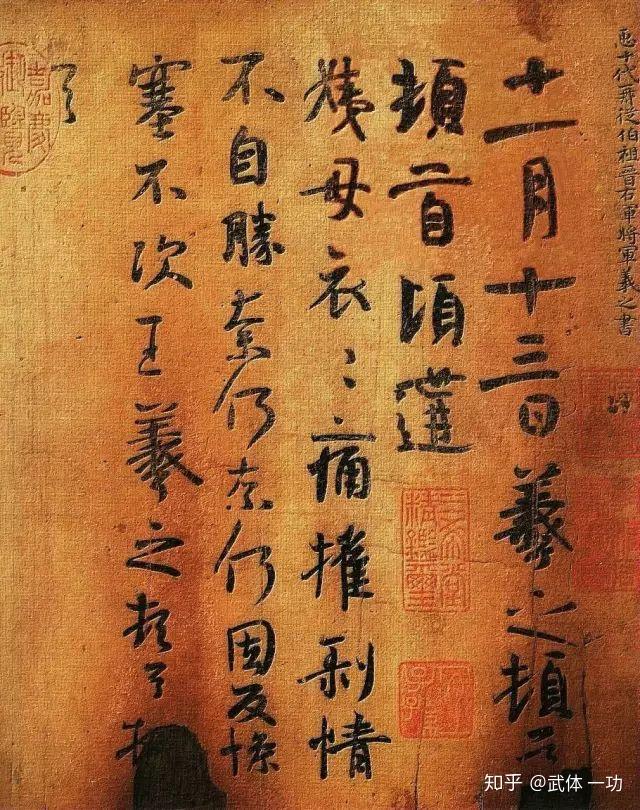 臣十代再從伯祖晉右軍將軍羲之書
十一月十三日羲之頓首
頓首頃遘
姨母哀〻痛摧剥情
不自勝奈何奈何因反慘
塞不次王羲之頓首頓
首
三希堂
精鑑璽
宜
子孫
嘉慶
知乎 @武体一功